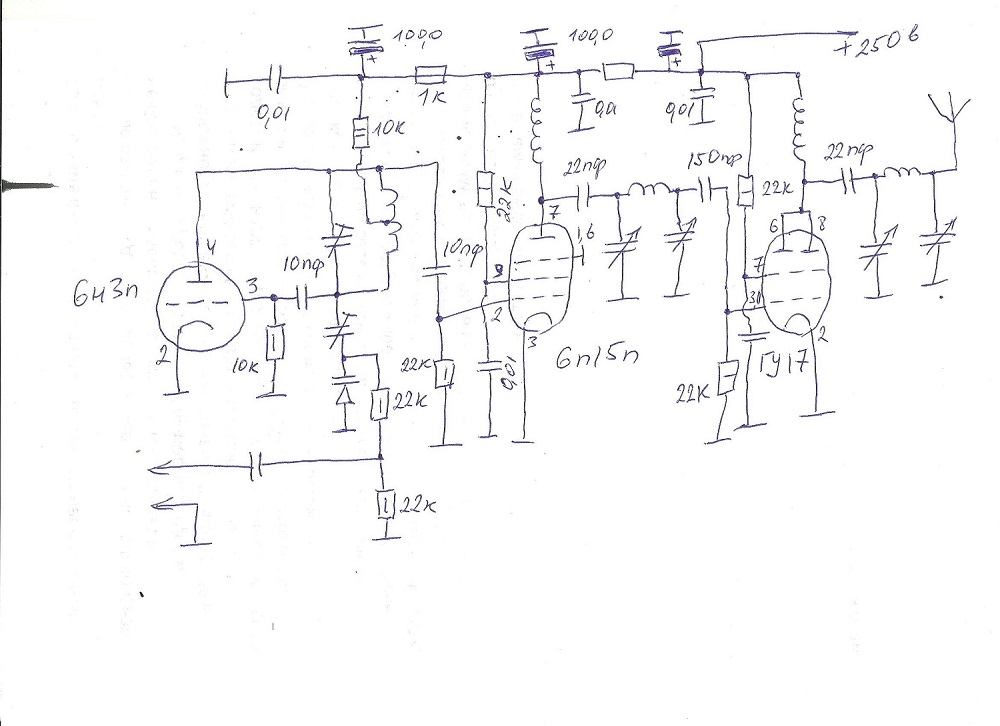 100,0
100,0
+250 в
+
+
+
0,01
1к
0,01
0,01
10к
22к
22пф
150пф
22к
22пф
7
1,6
6
8
4
10пф
10пф
3
9
7
6н3п
2
3,11
2
3
2
10к
22к
0,01
6п15п
ГУ17
22к
22к
22к